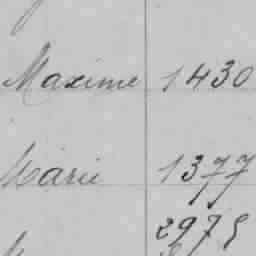 Maxime 1430
Marie 1377
2975